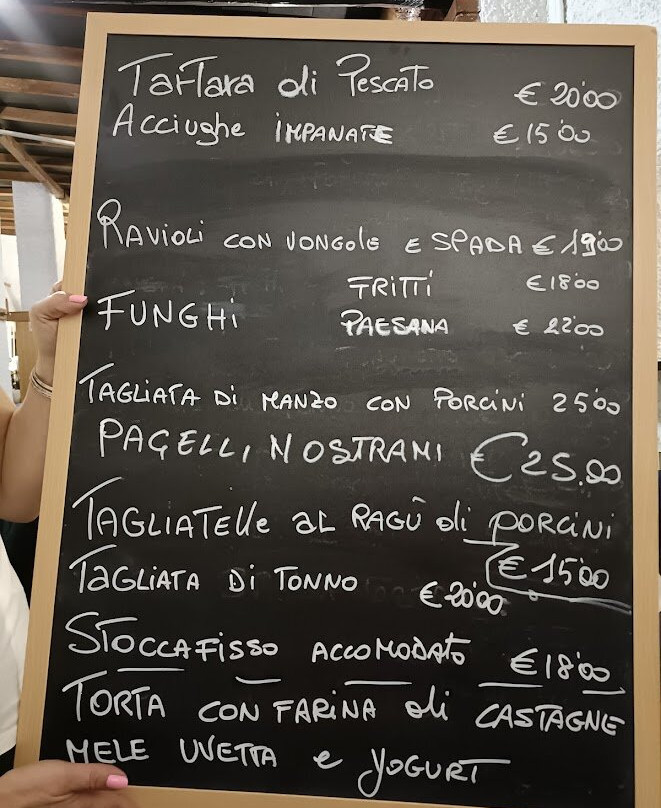 Tartara di Pescato € 20'00
Acciughe IMPANATE € 15'00
RAVIOLI CON VONGOLE E SPADA € 19'00
FRITTI € 18'00
FUNGHI PAESANA € 22'00
TAGLIATA DI MANZO CON PORCINI 25'00
PAGELLI NOSTRANI € 25.00
TAGLIATELLE AL RAGÛ di PORCINI
€ 15'00
TAGLIATA DI TONNO € 20'00
STOCCAFISSO ACCOMODATO € 18'00
TORTA CON FARINA di CASTAGNE
MELE UVETTA e YOGURT